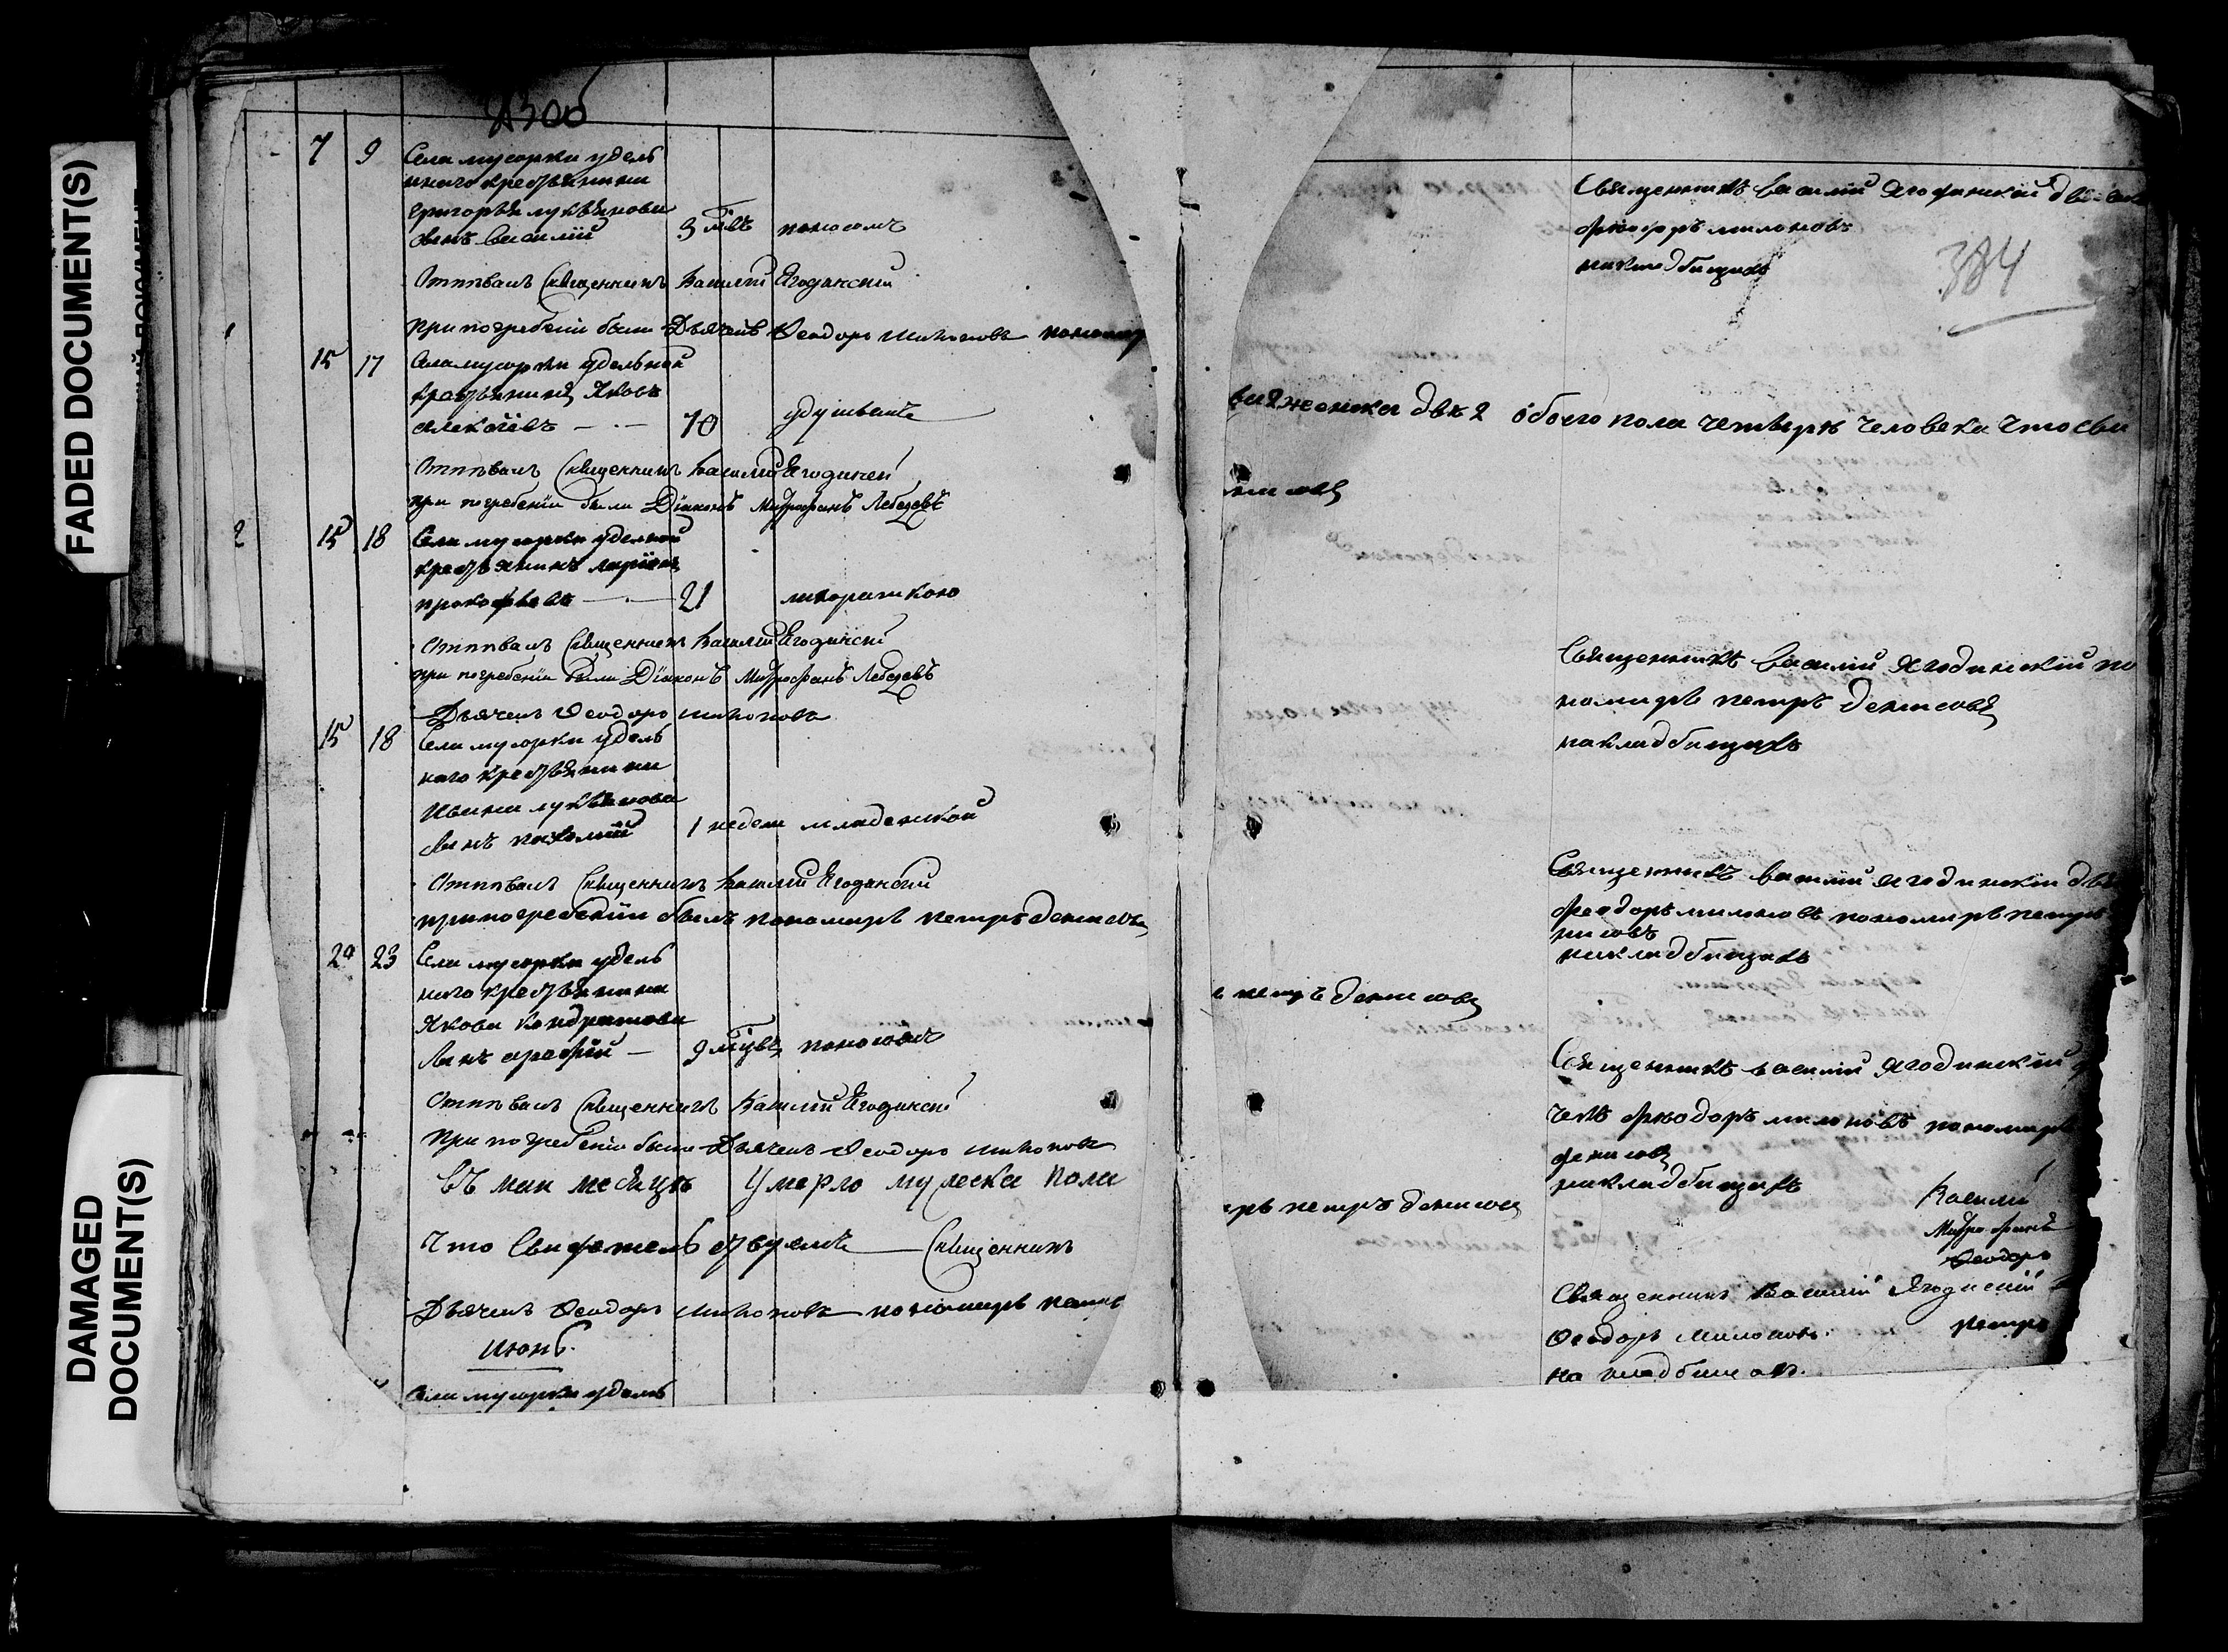 FADED DOCUMENT(S)
DAMAGED
DOCUMENT(S)
7 9 Села мусорки удель
наго крестьянина
григорья лукьянова
сынъ василій 9 мцъ поносомъ
Отпевалъ Священникъ Василій Ягодинскій
При погребеніи были Дьячекъ Феодоръ Милоновъ пономар
15 17 Села мусорки удельной
крестьянинъ Яковъ
алексіевъ 70 удушьемъ
Отпевалъ Священникъ Василій Ягодинскій
при погребеніи были Діаконъ Митрофанъ Лебедевъ
2 15 18 Села мусорки удельной
крестьянинъ ларіонъ
прокофьевъ 21 лихорадкою
Отпевалъ Священникъ Василій Ягодинскій
при погребеніи были Діаконъ Митрофанъ Лебедевъ
Дьячекъ Феодоръ Милоновъ
15 18 Села мусорки удель
наго крестьянина
Ивана лукьянова
сынъ пахомій 1 недели младенской
Отпевалъ Священникъ Василій Ягодинскій
при погребеніи былъ пономарь петръ денисовъ
23 Села мусорки удель
наго крестьянина
Якова кондратова
сынъ 9 мцъ поносомъ
Отпевалъ Священникъ Василій Ягодинскій
При погребеніи были Дьячекъ Феодоръ Милоновъ
въ маи месяцъ Умерло мужеска пола
Что Свидетельствуемъ Священникъ
Дьячекъ Феодоръ Милоновъ пономарь
Июнь.
Села мусорки удель
Священникъ Василій Ягодинскій
милоновъ
на кладбищахъ
384
женска две 2 обоего пола четыре человека что сви
нисовъ
Священникъ Василій Ягодинскій по
номарь петръ денисовъ
на кладбищахъ
Священникъ Василій Ягодинскій
Феодоръ милоновъ пономарь петръ
нисовъ
на кладбищахъ
петръ денисовъ
Священникъ Василій Ягодинскій
чекъ Феодоръ милоновъ пономарь
денисовъ
на кладбищахъ
рь петръ денисовъ
Василій
Митрофанъ
Феодоръ
Священникъ Василій
Феодоръ Милоновъ. петръ
на кладбищахъ.